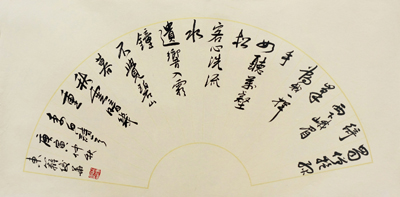 蜀僧抱綠
綺
西下峨眉
峰
為我一揮
手
如聽萬壑
松
客心洗流
水
遺響入霜
鐘
不覺碧山
暮
秋雲暗幾
重
李白詩
庚寅仲秋